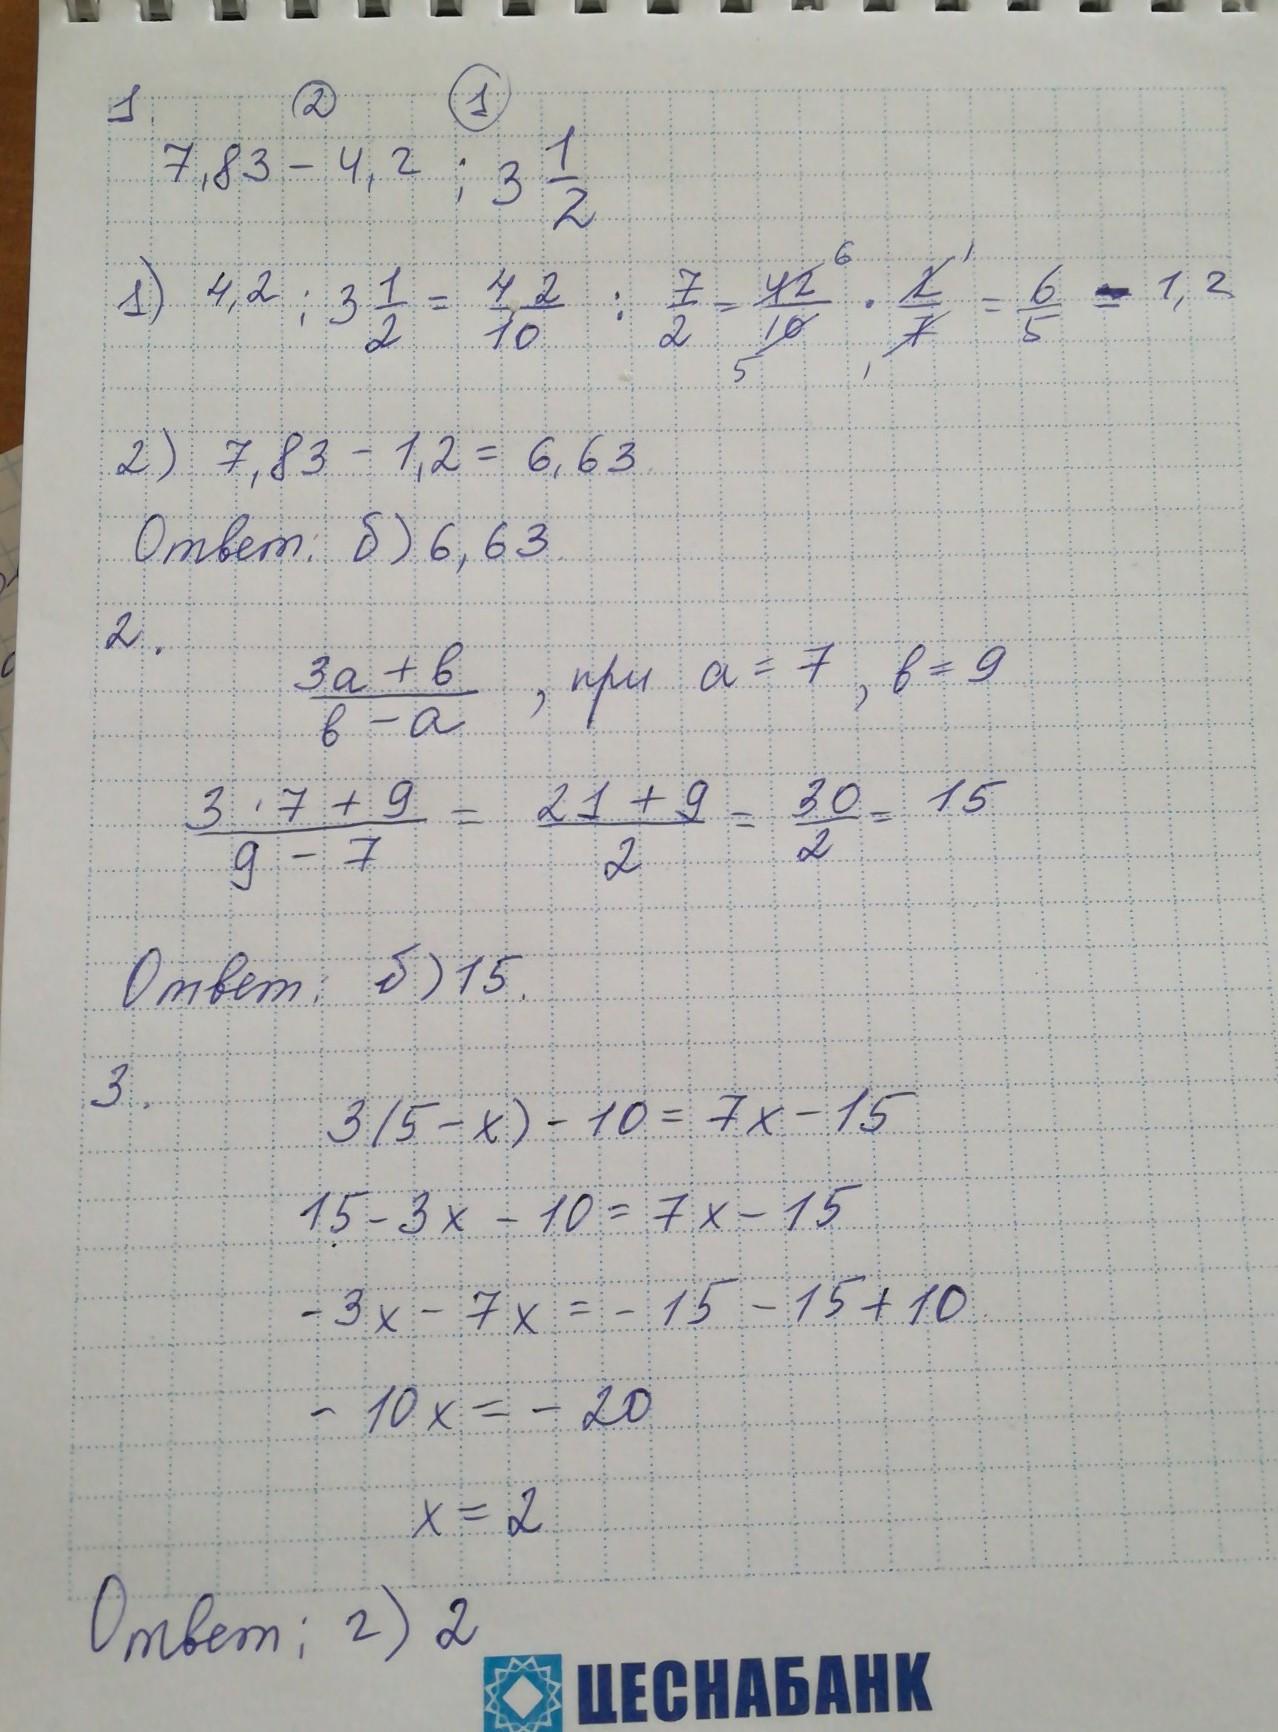 1 ② ①
7,83 - 4,2 : 3 1/2
1) 4,2 : 3 1/2 = 42/10 : 7/2 = 42/10 · 2/7 = 6/5 = 1,2
6 1
5 1
2) 7,83 - 1,2 = 6,63
Ответ: б) 6,63
2.
3а + в / в - а , при а = 7 , в = 9
3 · 7 + 9 / 9 - 7 = 21 + 9 / 2 = 30/2 = 15
Ответ: б) 15.
3.
3(5 - х) - 10 = 7х - 15
15 - 3х - 10 = 7х - 15
- 3х - 7х = - 15 - 15 + 10
- 10х = - 20
х = 2
Ответ: г) 2
ЦЕСНАБАНК